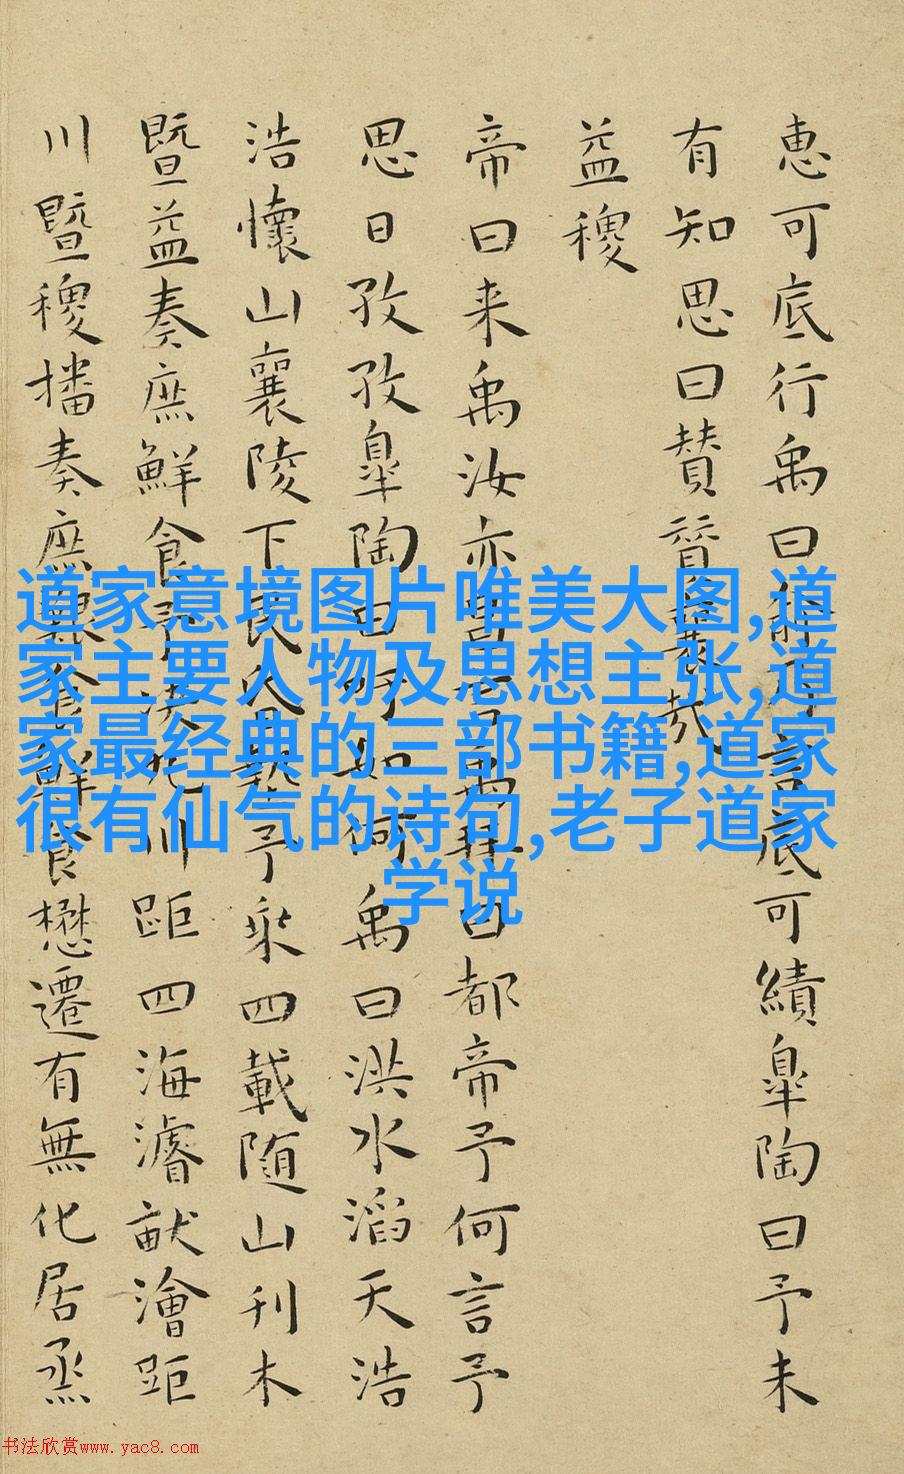 惠可底行禹曰乃言底可績皐陶曰予未
有知思曰賛襄哉
益稷
帝曰来禹汝亦昌言禹拜曰都帝予何言予
思日孜孜皐陶曰吁如何禹曰洪水滔天浩
浩懷山襄陵下民昏墊予乘四載随山刊木
暨益奏庶鮮食予決九川距四海濬畎澮距
川暨稷播奏庶艱食鮮食懋遷有無化居烝
道家意境图片唯美大图,道
家主要人物及思想主张,道
家最经典的三部书籍,道家
很有仙气的诗句,老子道家
学说
书法欣赏www.yac8.com